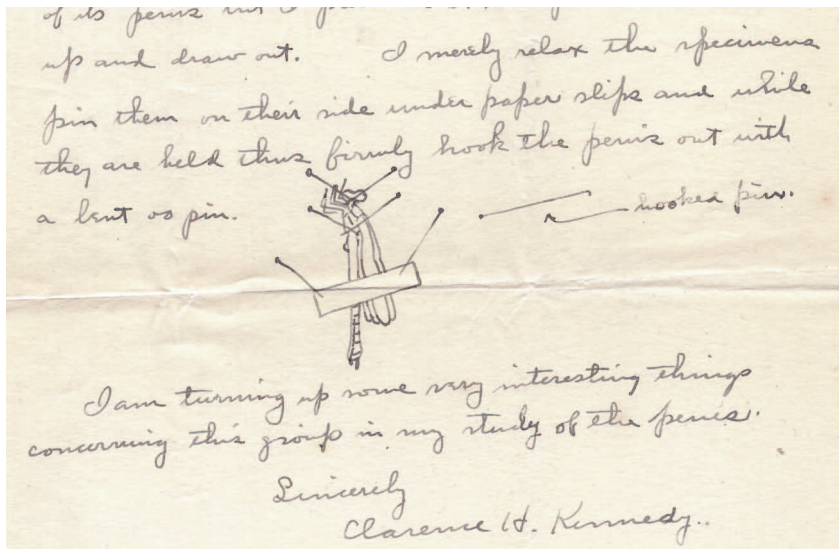 of its penis
up and draw out. I merely relax the specimens
pin them on their side under paper slips and while
they are held thus firmly hook the penis out with
a bent 00 pin.
hooked pin.
I am turning up some very interesting things
concerning this group in my study of the penes.
Sincerely
Clarence H. Kennedy..